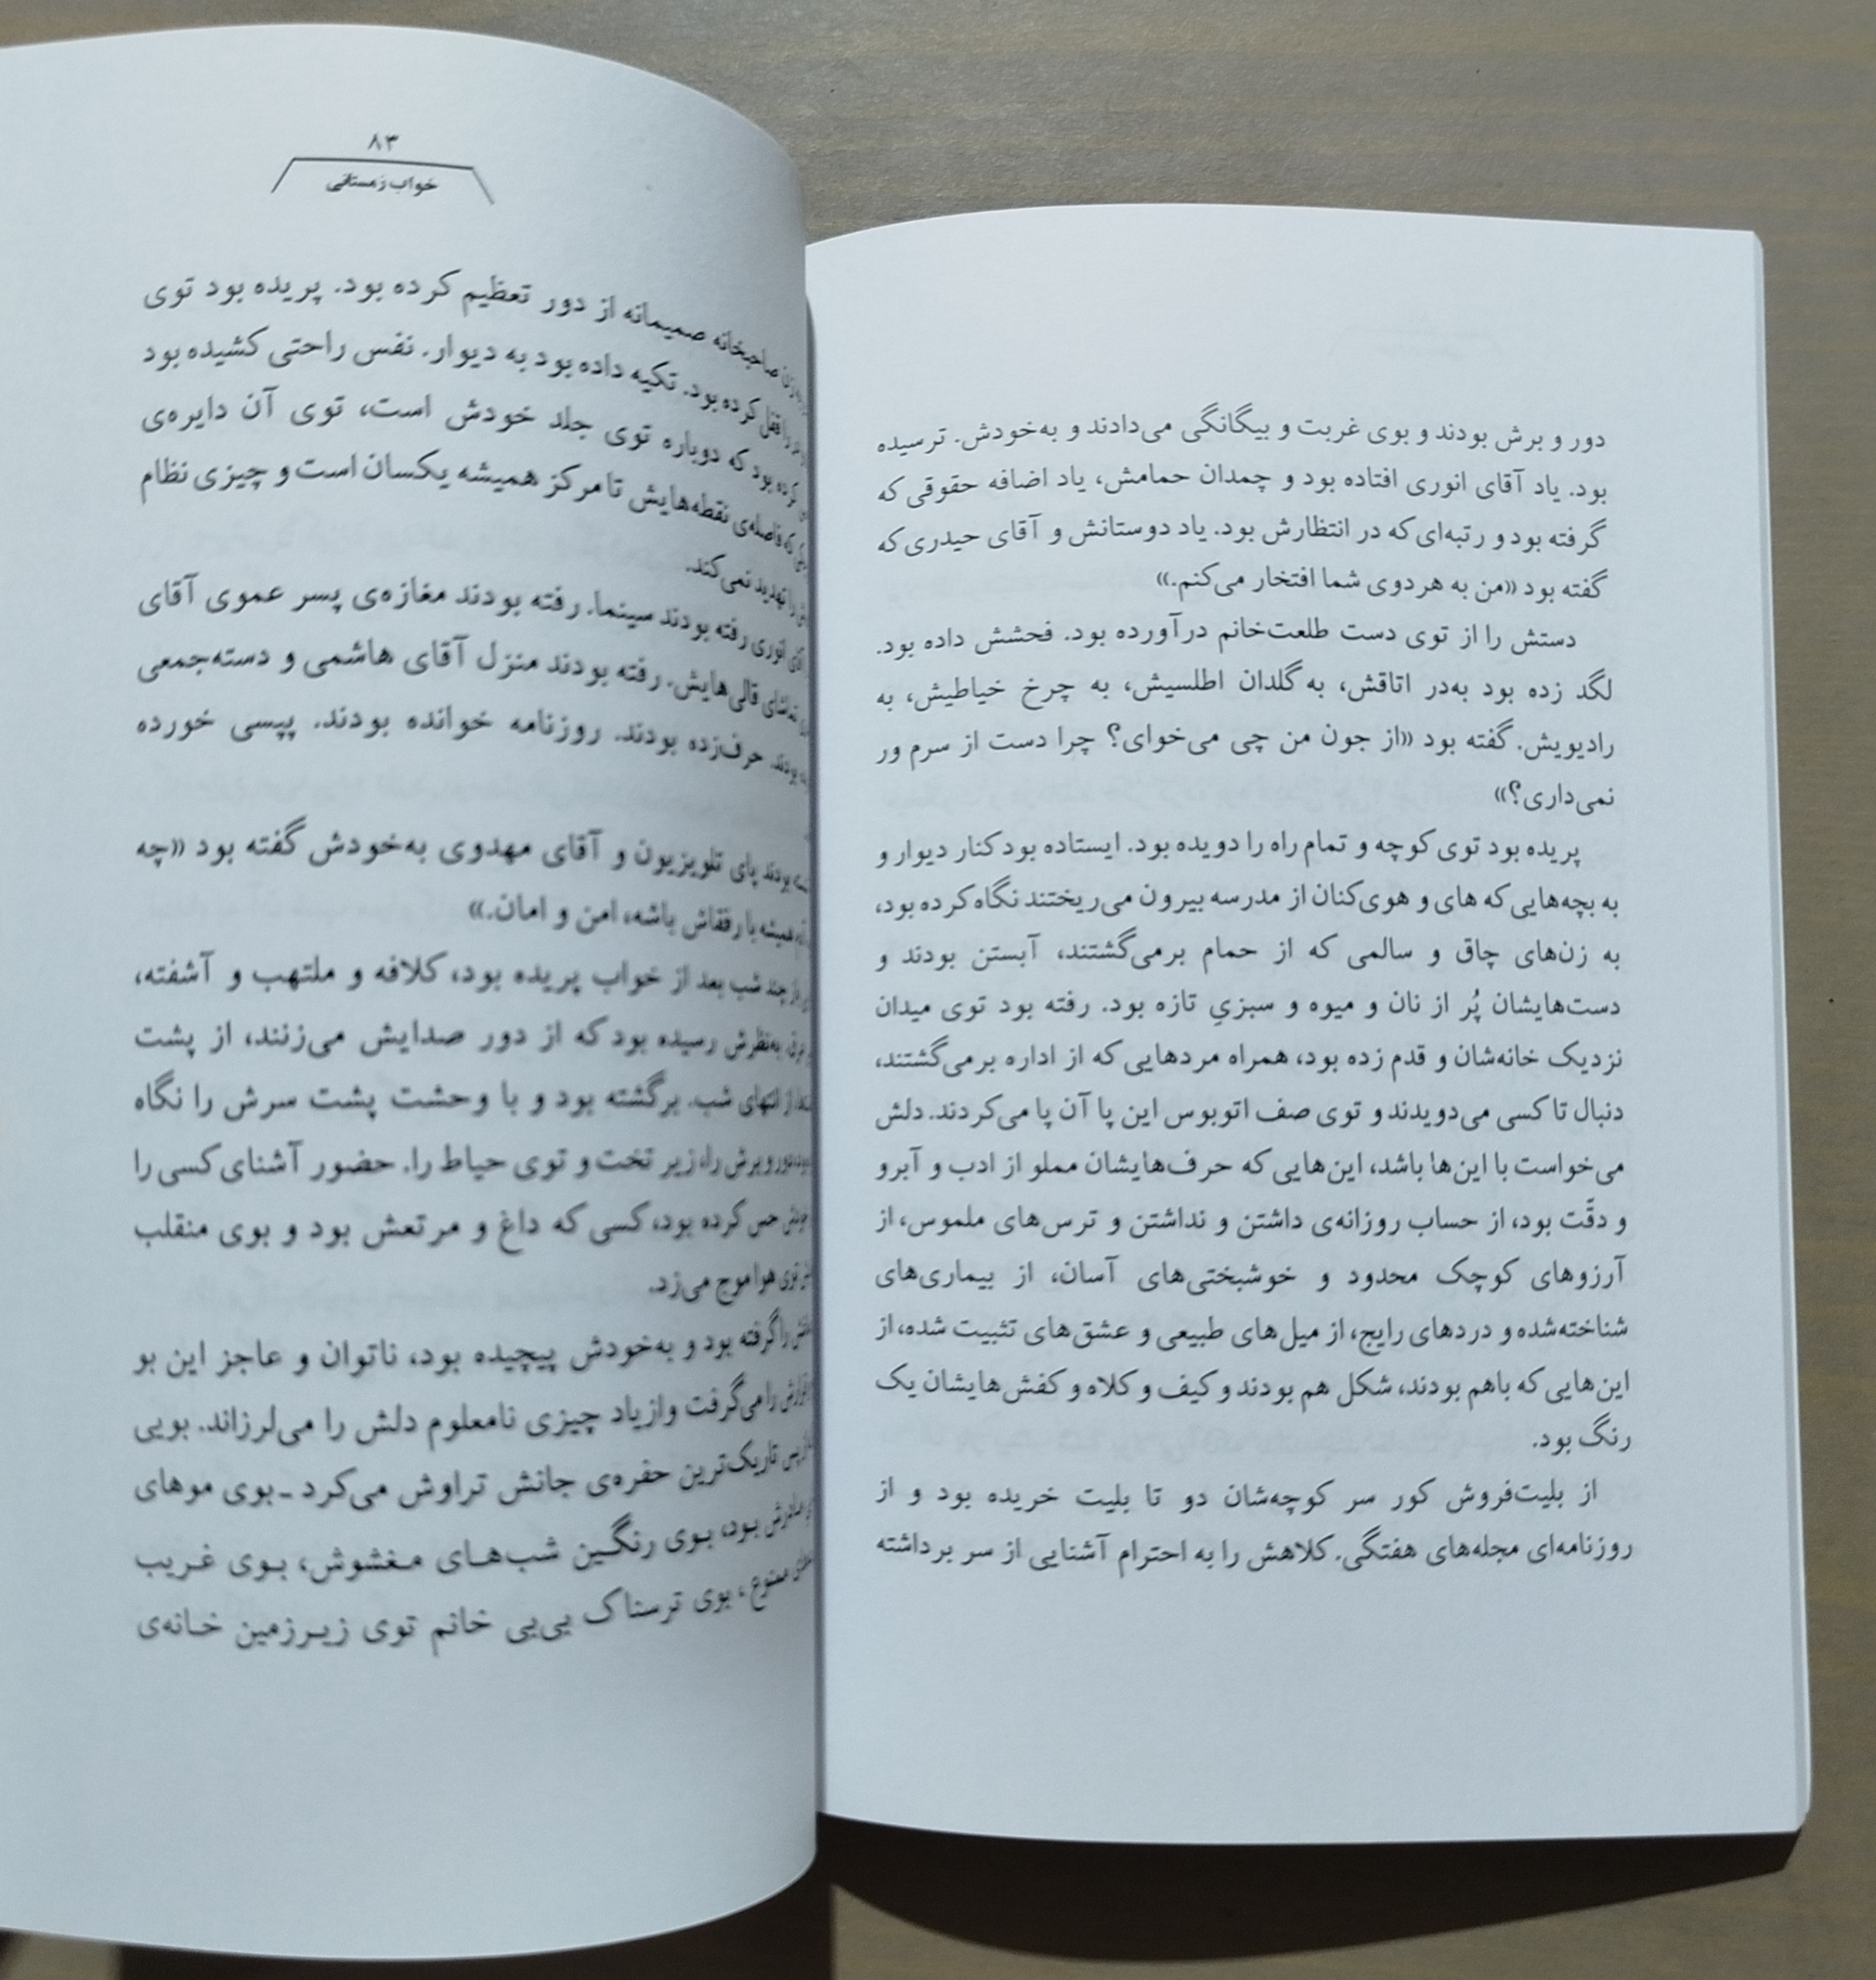 دور و برش بودند و بوی غربت و بیگانگی می‌دادند و به‌خودش. ترسیده
بود. یاد آقای انوری افتاده بود و چمدان حمامش، یاد اضافه حقوقی که
گرفته بود و رتبه‌ای که در انتظارش بود. یاد دوستانش و آقای حیدری که
گفته بود «من به هر دوی شما افتخار می‌کنم.»
دستش را از توی دست طلعت‌خانم درآورده بود. فحشش داده بود.
لگد زده بود به‌در اتاقش، به گلدان اطلسیش، به چرخ خیاطیش، به
رادیویش. گفته بود «از جون من چی می‌خوای؟ چرا دست از سرم ور
نمی‌داری؟»
پریده بود توی کوچه و تمام راه را دویده بود. ایستاده بود کنار دیوار و
به بچه‌هایی که های و هوی‌کنان از مدرسه بیرون می‌ریختند نگاه کرده بود،
به زن‌های چاق و سالمی که از حمام برمی‌گشتند، آبستن بودند و
دست‌هایشان پُر از نان و میوه و سبزیِ تازه بود. رفته بود توی میدان
نزدیک خانه‌شان و قدم زده بود، همراه مردهایی که از اداره برمی‌گشتند،
دنبال تاکسی می‌دویدند و توی صف اتوبوس این پا آن پا می‌کردند. دلش
می‌خواست با این‌ها باشد، این‌هایی که حرف‌هایشان مملو از ادب و آبرو
و دقّت بود، از حساب روزانه‌ی داشتن و نداشتن و ترس‌های ملموس، از
آرزوهای کوچک محدود و خوشبختی‌های آسان، از بیماری‌های
شناخته‌شده و دردهای رایج، از میل‌های طبیعی و عشق‌های تثبیت شده، از
این‌هایی که باهم بودند، شکل هم بودند و کیف و کلاه و کفش‌هایشان یک
رنگ بود.
از بلیت‌فروش کور سر کوچه‌شان دو تا بلیت خریده بود و از
روزنامه‌ای مجله‌های هفتگی. کلاهش را به احترام آشنایی از سر برداشته
۸۳
خواب زمستانی
صاحبخانه صمیمانه از دور تعظیم کرده بود. پریده بود توی
را قفل کرده بود. تکیه داده بود به دیوار. نفس راحتی کشیده بود
کرده بود که دوباره توی جلد خودش است، توی آن دایره‌ی
که فاصله‌ی نقطه‌هایش تا مرکز همیشه یکسان است و چیزی نظام
را تهدید نمی‌کند.
آقای انوری رفته بودند سینما. رفته بودند مغازه‌ی پسر عموی آقای
تماشای قالی‌هایش. رفته بودند منزل آقای هاشمی و دسته‌جمعی
بودند. حرف‌زده بودند. روزنامه خوانده بودند. پپسی خورده
بودند پای تلویزیون و آقای مهدوی به‌خودش گفته بود «چه
همیشه با رفقاش باشه، امن و امان.»
چند شب بعد از خواب پریده بود، کلافه و ملتهب و آشفته،
به‌نظرش رسیده بود که از دور صدایش می‌زنند، از پشت
از انتهای شب. برگشته بود و با وحشت پشت سرش را نگاه
دور و برش را، زیر تخت و توی حیاط را. حضور آشنای کسی را
حس کرده بود، کسی که داغ و مرتعش بود و بوی منقلب
توی هوا موج می‌زد.
را گرفته بود و به‌خودش پیچیده بود، ناتوان و عاجز این بو
را می‌گرفت و از یاد چیزی نامعلوم دلش را می‌لرزاند. بویی
پس تاریک‌ترین حفره‌ی جانش تراوش می‌کرد ـ بوی موهای
مادرش بود، بوی رنگین شب‌های مغشوش، بوی غریب
ممنوع، بوی ترسناک بی‌بی خانم توی زیرزمین خانه‌ی